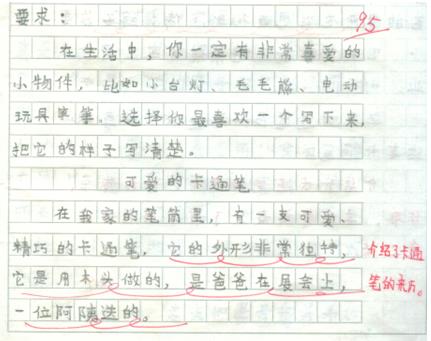 要求：
95
在生活中，你一定有非常喜爱的
小物件，比如小台灯、毛毛熊、电动
玩具等等。选择你最喜欢一个写下来，
把它的样子写清楚。
可爱的卡通笔
在我家的笔筒里，有一支可爱、
精巧的卡通笔。它的外形非常独特，
介绍了卡通
它是用木头做的，是爸爸在展会上，
笔的来历。
一位阿姨送的。